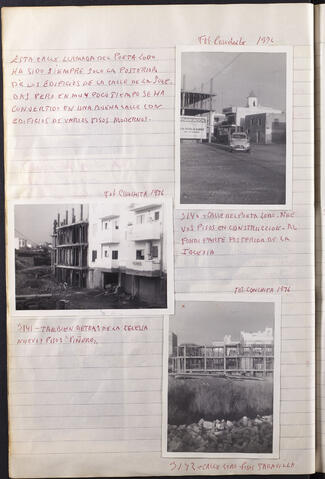 ESTA CALLE LLAMADA DEL POETA LOBO
HA SIDO SIEMPRE SOLO LA POSTERIOR
DE LOS EDIFICIOS DE LA CALLE DE LA
PERO EN MUY POCO TIEMPO SE HA
CONVERTIDO EN UNA BUENA CALLE CON
EDIFICIOS DE VARIOS PISOS MODERNOS.
Fot Conchita 1976
3140 - CALLE DEL POETA LOBO. NUE
VOS PISOS EN CONSTRUCCION. AL
FONDO PARTE POSTERIOR DE LA
IGLESIA
Fot CONCHITA 1976
3141 - TAMBIEN DETRAS DE LA IGLESIA
NUEVOS PISOS
Fot CONCHITA 1976
CALLE PISOS